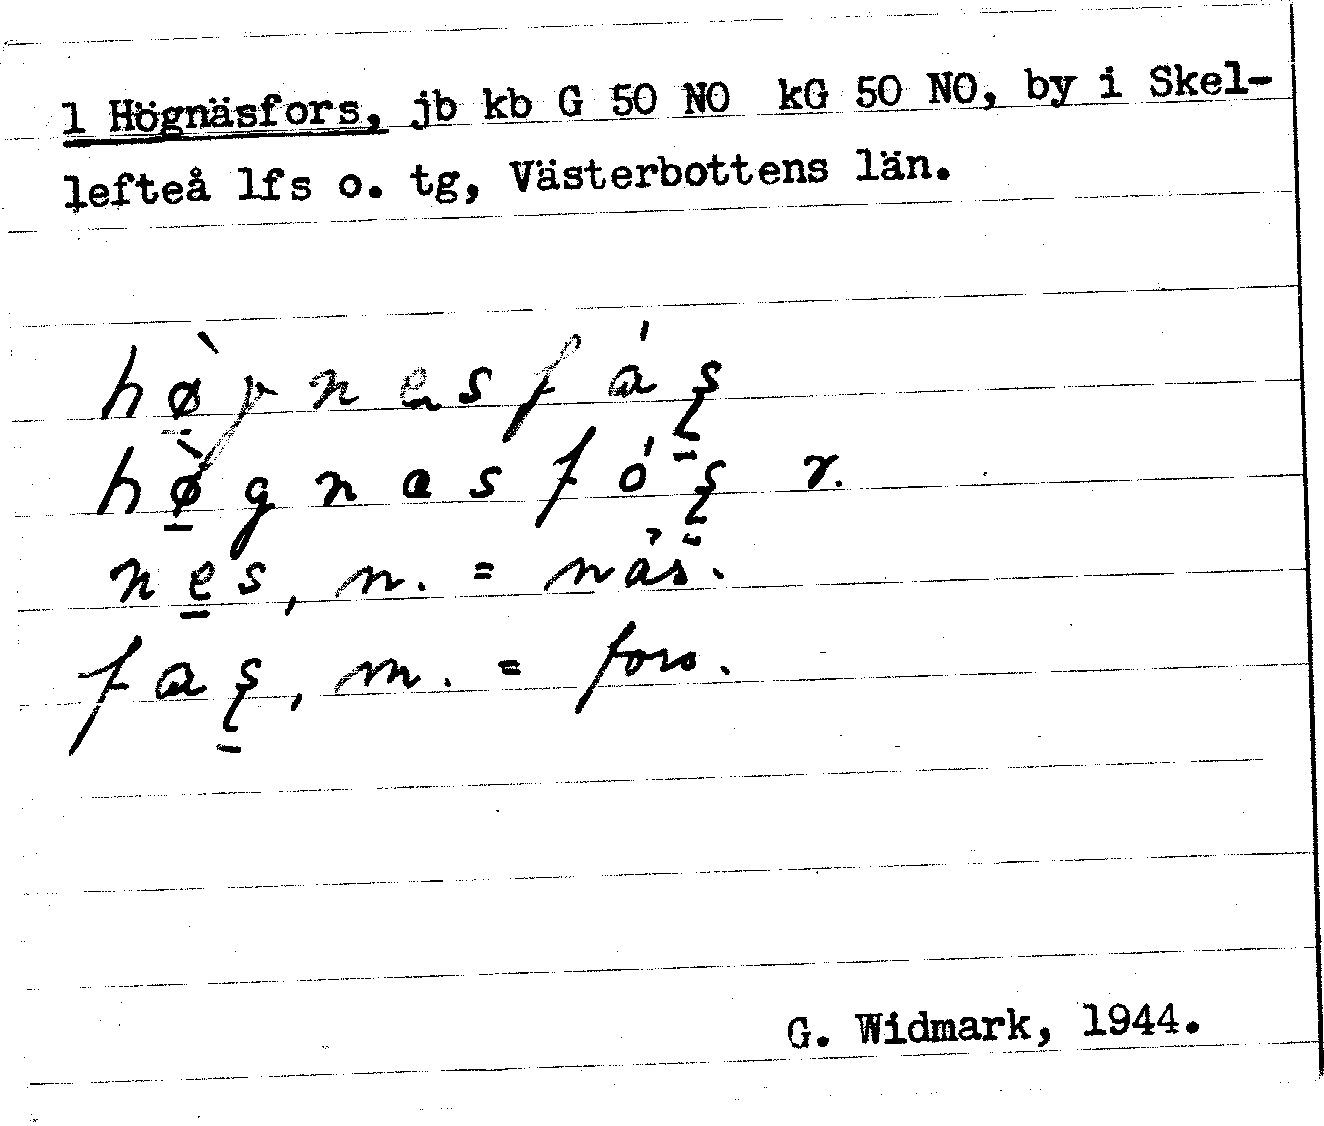 1 Högnäsfors, jb kb G 50 NO kG 50 NO, by i Skel-
lefteå lfs o. tg, Västerbottens län.
hø̱̀γnesfáʂ
hø̱̀gnasfóʂ r.
ne̱s, n. = näs.
faʂ, m. = fors.
G. Widmark, 1944.